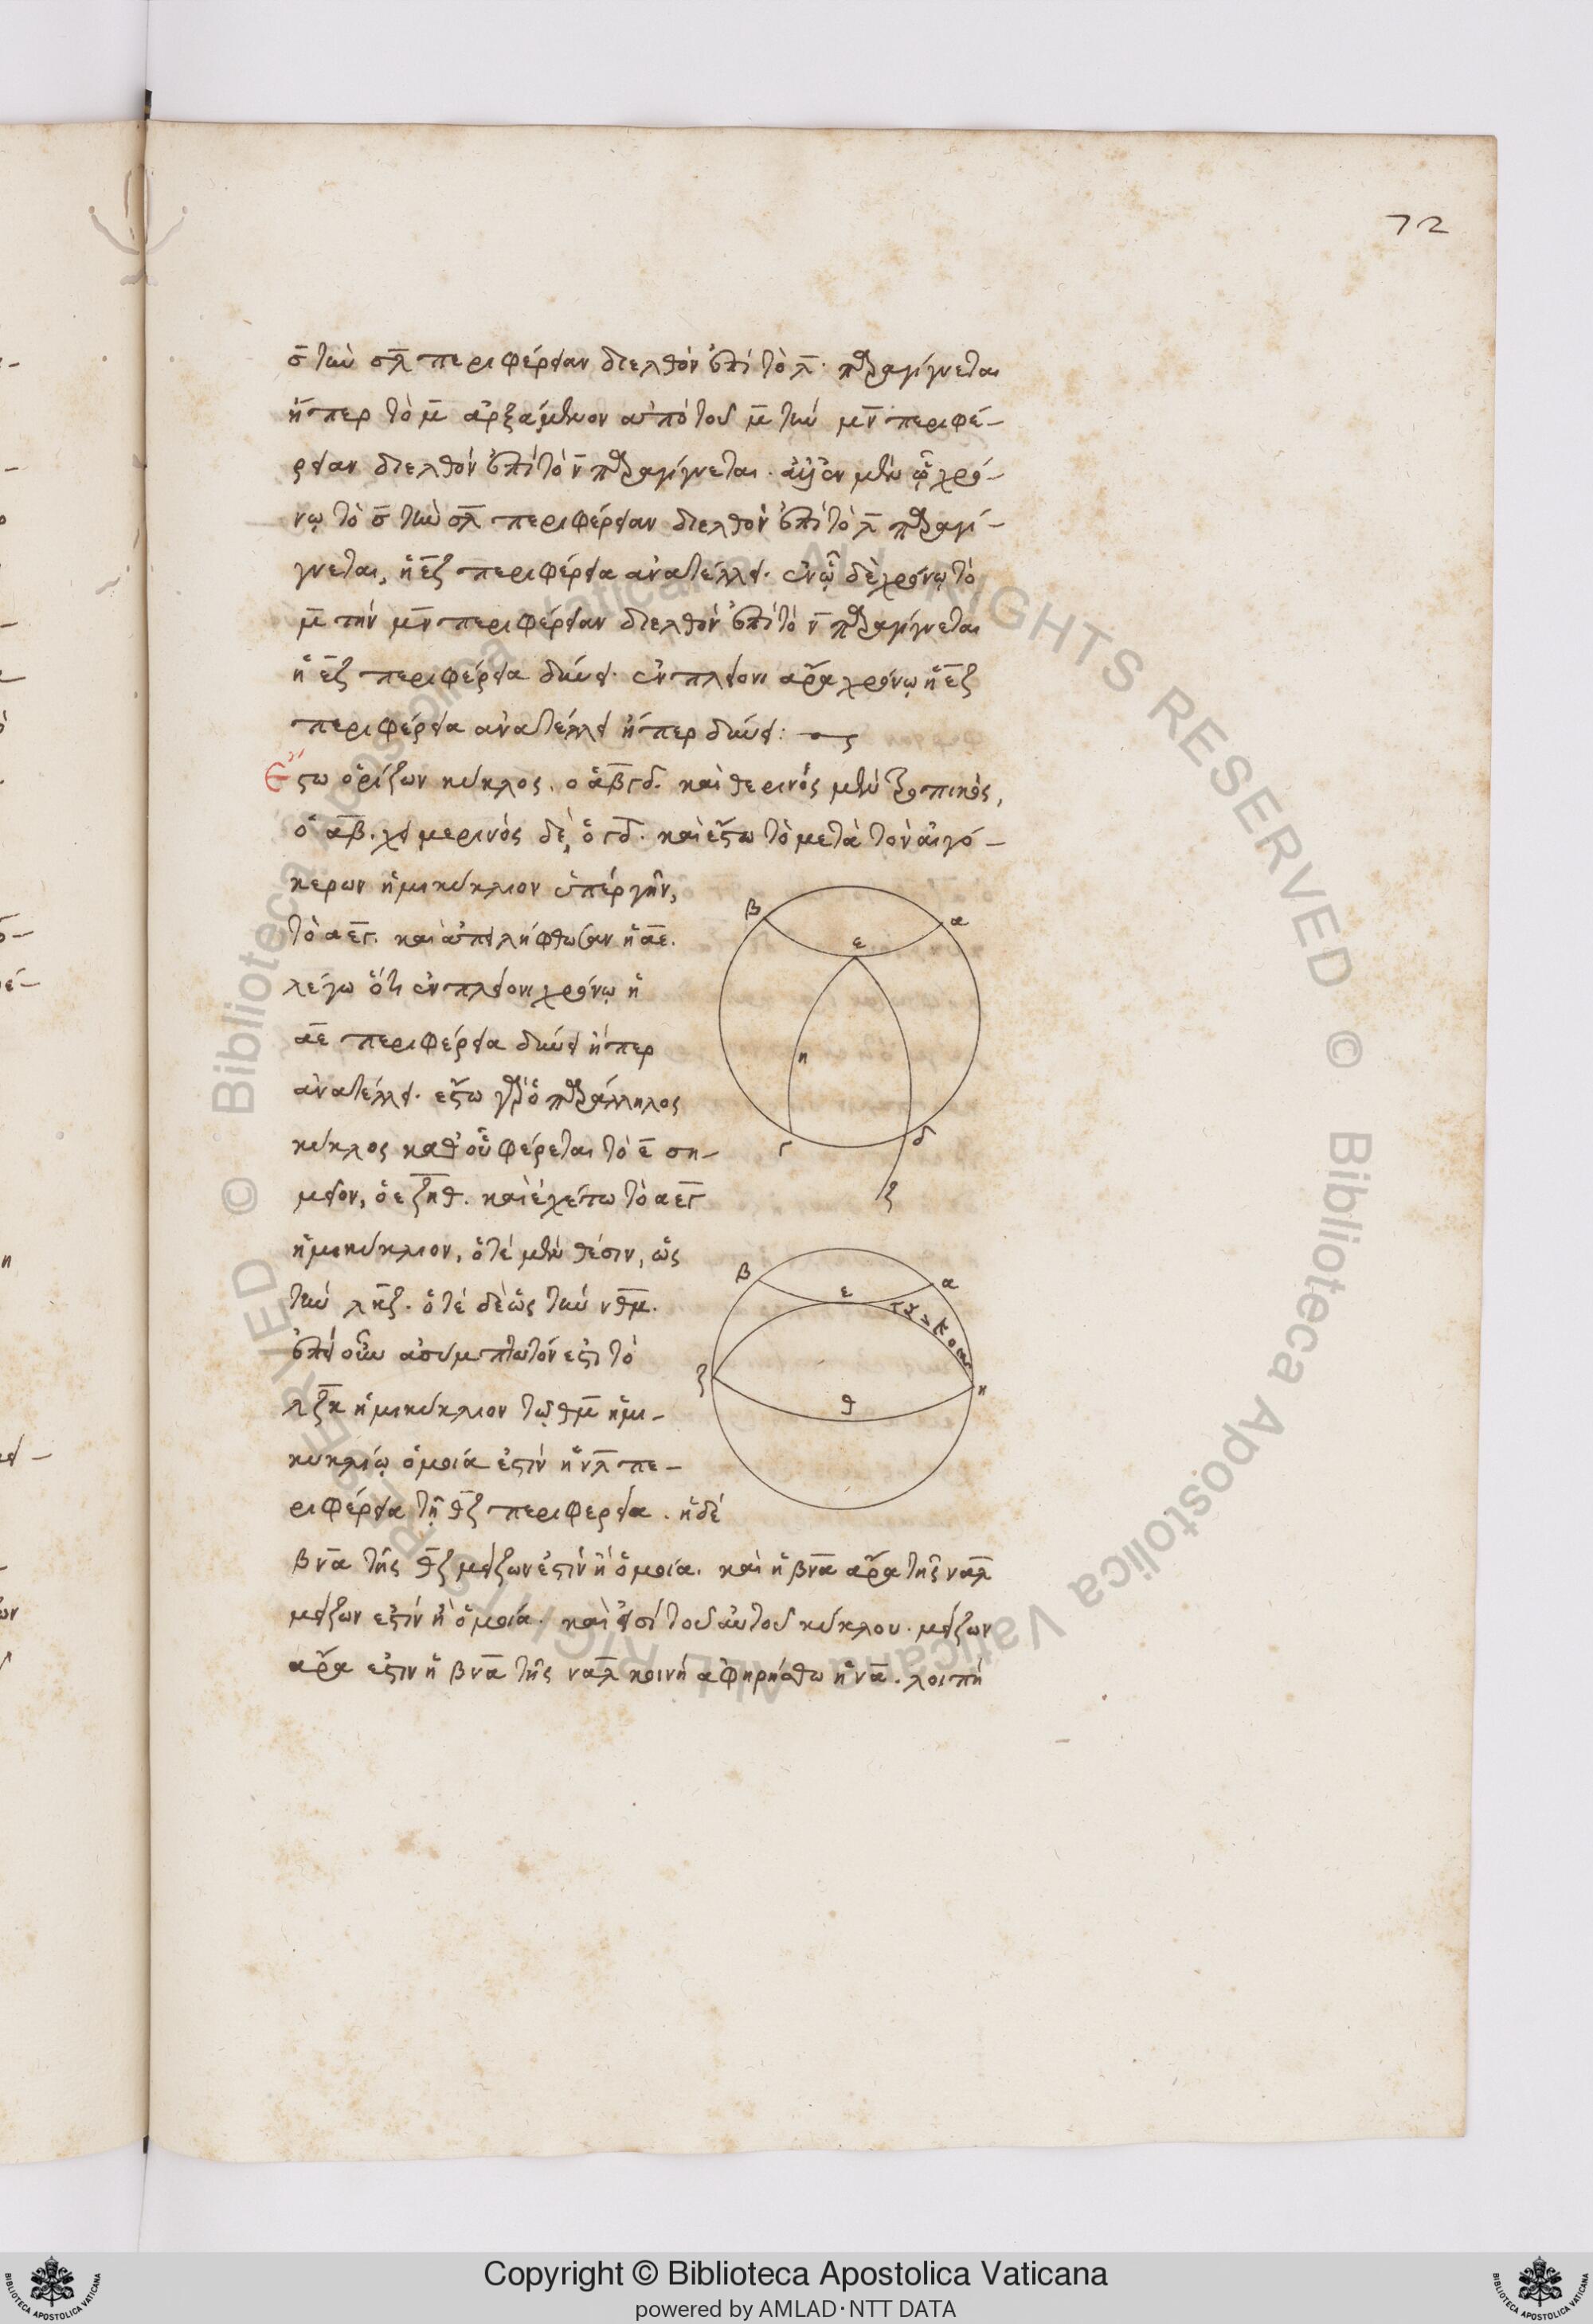 72
ο̅ τὴν ο̅λ̅ περιφέρειαν διελθὸν ἐπὶ τὸ λ̅. παραγίγνεται
ἤπερ τὸ μ̅ ἀρξάμενον ἀπὸ τοῦ μ̅ τὴν μ̅ν̅ περιφέ-
ρειαν διελθὸν ἐπὶ τὸ ν̅ παραγίγνεται. ἀλλ' ἐν μὲν ᾧ χρό-
νῳ τὸ ο̅ τὴν ο̅λ̅ περιφέρειαν διελθὸν ἐπὶ τὸ λ̅ παραγί-
γνεται, ἡ ε̅ζ̅ περιφέρεια ἀνατέλλει. ἐν ᾧ δὲ χρόνῳ τὸ
μ̅ τὴν μ̅ν̅ περιφέρειαν διελθὸν ἐπὶ τὸ ν̅ παραγίγνεται
ἡ ε̅ζ̅ περιφέρεια δύνει. ἐν πλείονι ἄρα χρόνῳ ἡ ε̅ζ̅
περιφέρεια ἀνατέλλει ἤπερ δύνει:
Ἔστω ὁρίζων κύκλος. ὁ αβγδ. καὶ θερινὸς μὲν τροπικὸς,
ὁ αβ. χειμερινὸς δὲ, ὁ γδ. καὶ ἔστω τὸ μετὰ τὸν αἰγό-
κερων ἡμικύκλιον ὑπὲρ γῆν,
τὸ αεγ. καὶ ἀπειλήφθωσαν ἡ αε.
λέγω ὅτι ἐν πλείονι χρόνῳ ἡ
αε περιφέρεια δύνει ἤπερ
ἀνατέλλει. ἔστω γὰρ ὁ παράλληλος
κύκλος καθ' οὗ φέρεται τὸ ε̅ ση-
μεῖον, ὁ εζηθ. καὶ ἐχέτω τὸ αεγ
ἡμικύκλιον, ὁτὲ μὲν θέσιν, ὡς
τὴν λκζ. ὁτὲ δὲ ὡς τὴν νθμ.
ἐπεὶ οὖν ἀσύμπτωτόν ἐστι τὸ
λζκ ἡμικύκλιον τῷ θμ ἡμι-
κυκλίῳ ὁμοία ἐστὶν ἡ νλ πε-
ριφέρεια τῇ θζ περιφερεία. ἡ δὲ
βνα τῆς θζ μείζων ἐστὶν ἢ ὁμοία. καὶ ἡ βνα ἄρα τῆς ναλ
μείζων ἐστὶν ἢ ὁμοία. καὶ εἰσὶ τοῦ αὐτοῦ κύκλου. μείζων
ἄρα ἐστὶν ἡ βνα τῆς ναλ κοινὴ ἀφηρήσθω ἡ να. λοιπὴ
β
α
ε
η
γ
δ
ζ
β
α
ε
ζ
η
θ
© Biblioteca Apostolica Vaticana ALL RIGHTS RESERVED © Biblioteca Apostolica Vaticana ALL RIGHTS RESERVED
Copyright © Biblioteca Apostolica Vaticana
powered by AMLAD·NTT DATA
BIBLIOTECA APOSTOLICA VATICANA
BIBLIOTECA APOSTOLICA VATICANA